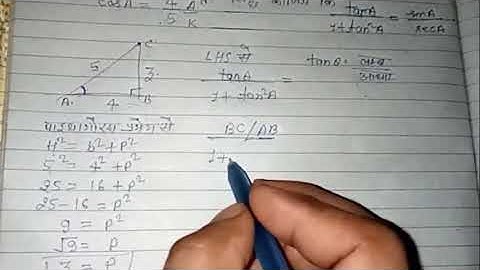 cosA = 4/5 K
tanA/1+tan²A = sinA/secA
C
5
3
A
4
B
LHS से
tanA/1+tan²A = tanA = लम्ब/आधार
BC/AB
1+
पाइथागोरस प्रमेय से
H² = b²+p²
5² = 4²+p²
25 = 16+p²
25-16 = p²
9 = p²
√9 = p
3 = p